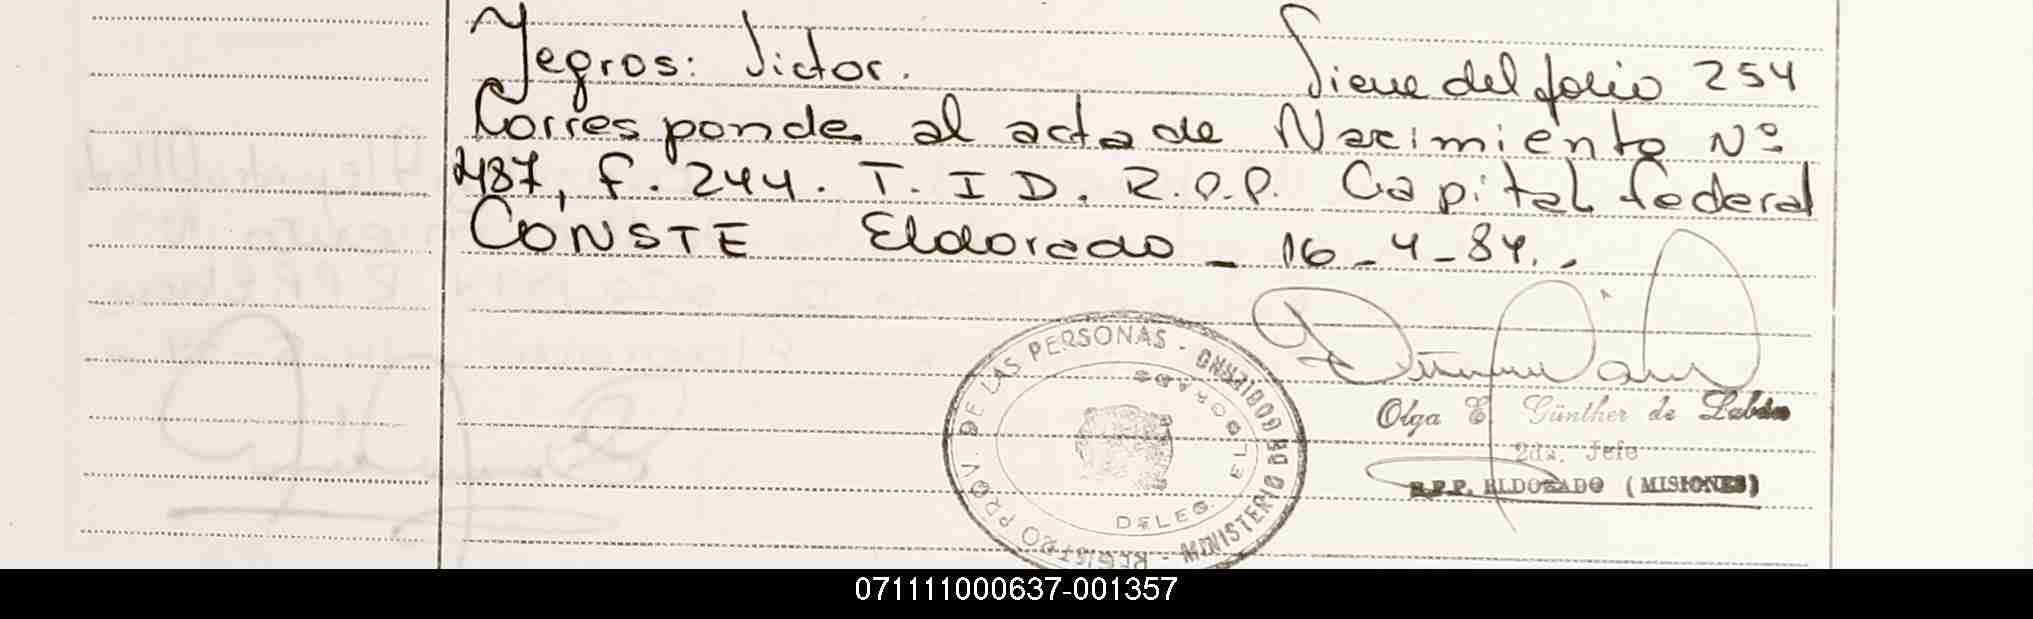 Yegros: Victor.
Viene del folio 254
Corresponde al acta de Nacimiento Nº
487, F. 244. T. I D. R.P.P. Capital federal
CONSTE Eldorado - 16-4-84.-
REGISTRO PROV. DE LAS PERSONAS - MINISTERIO DE GOBIERNO
DELEG. ELDORADO
Olga E. Günther de
2da. Jefe
R.P.P. ELDORADO (MISIONES)
071111000637-001357